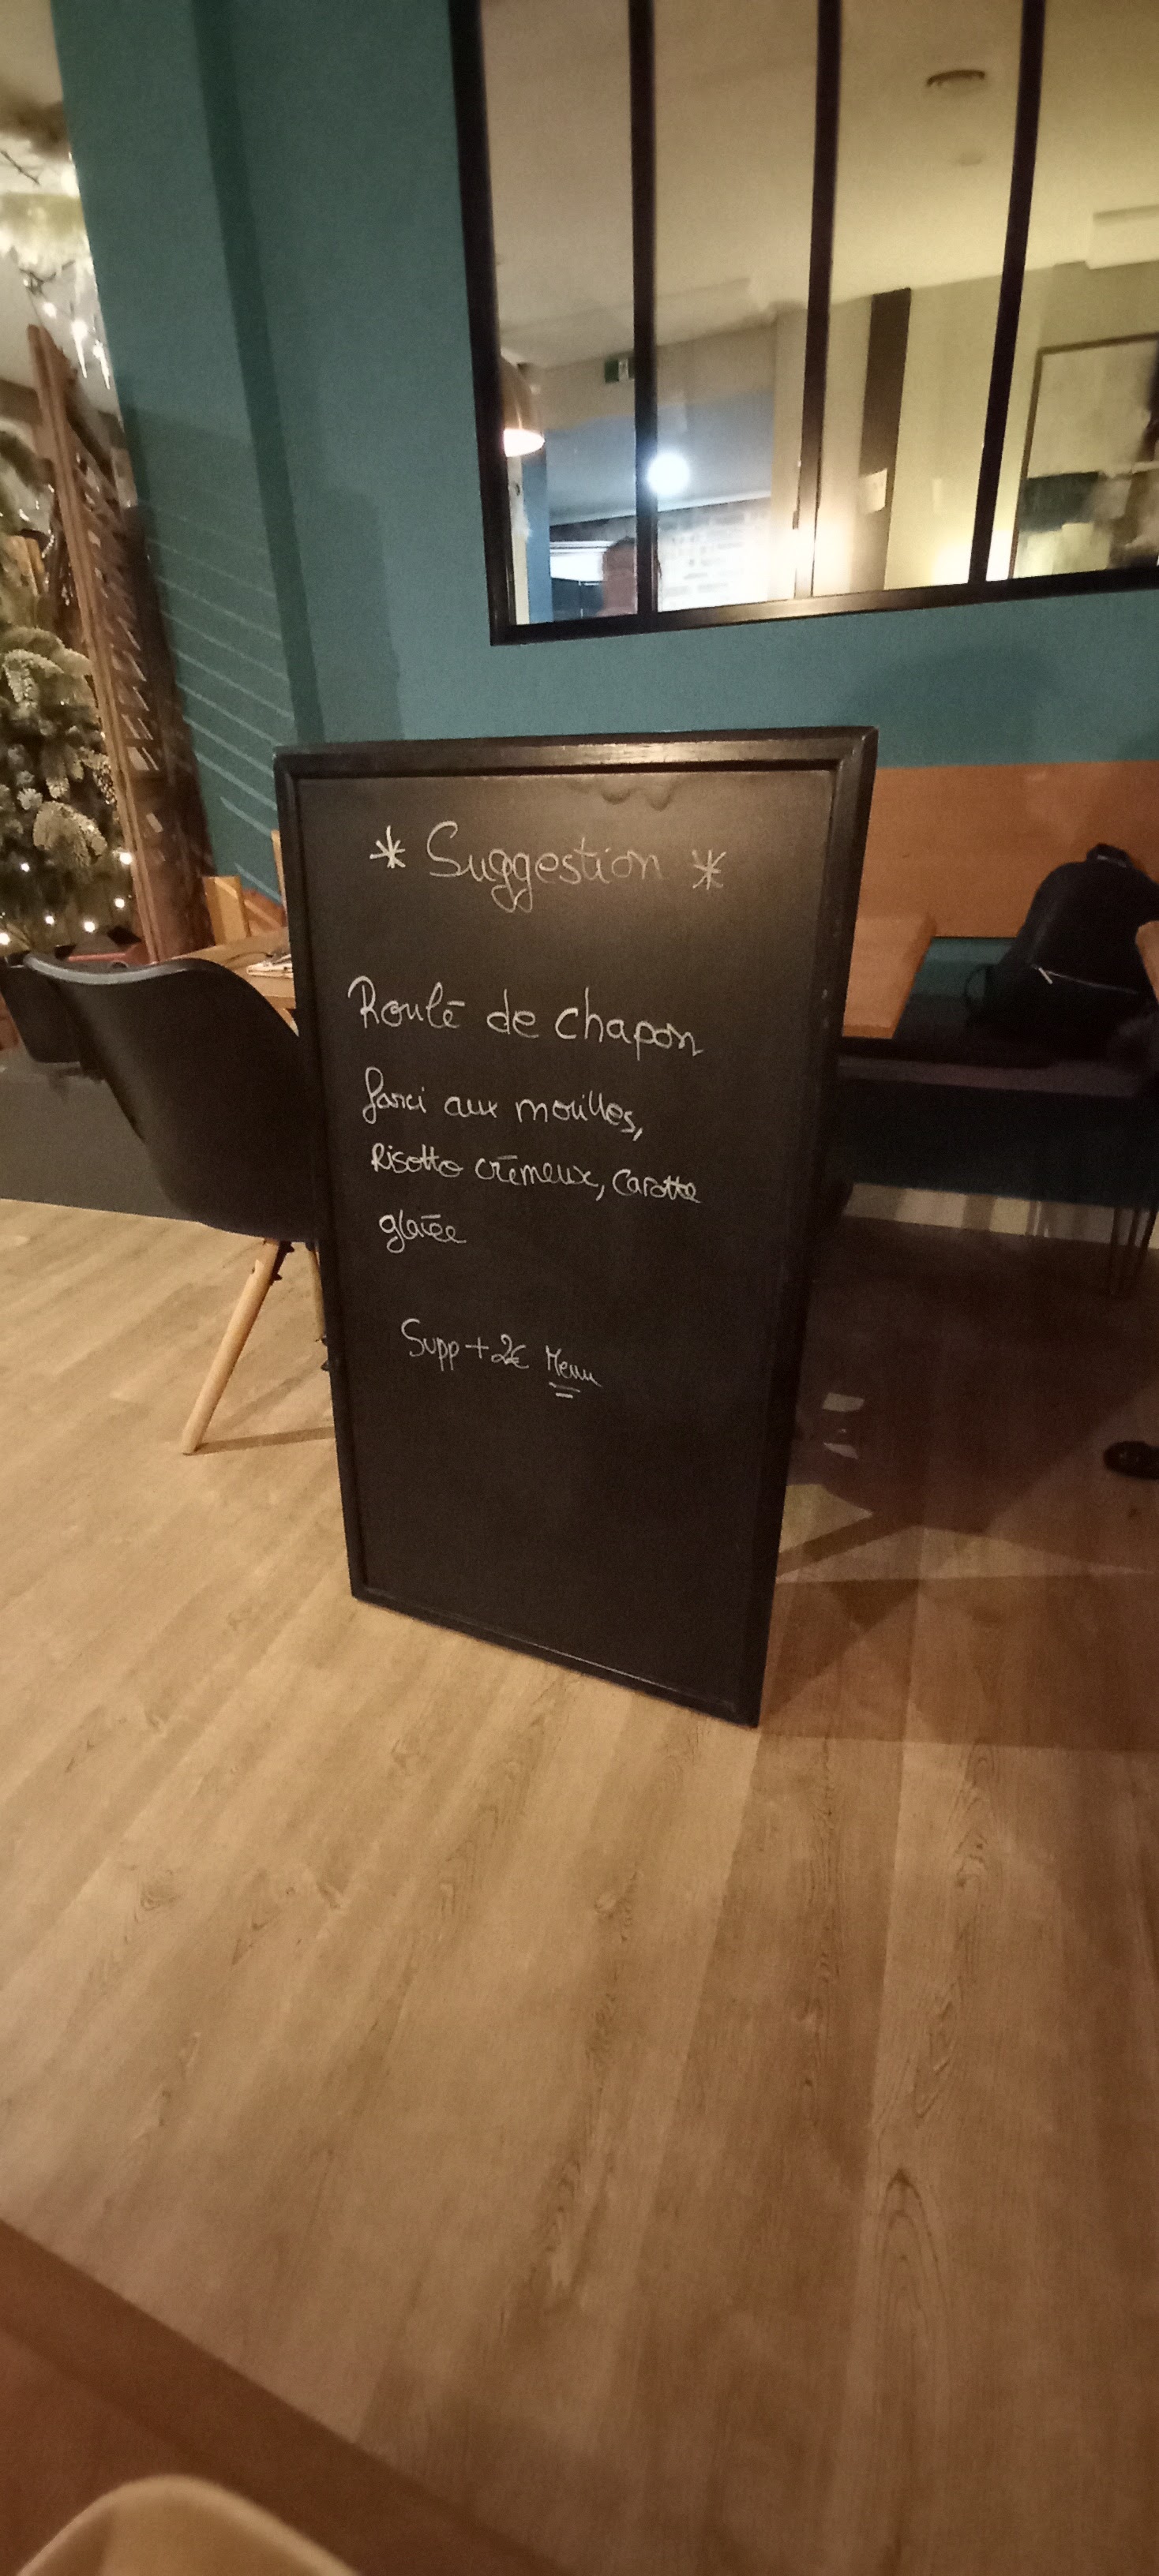 * Suggestion *
Roulé de chapon
farci aux morilles,
Risotto crémeux, carotte
glacée
Supp + 2€ Menu